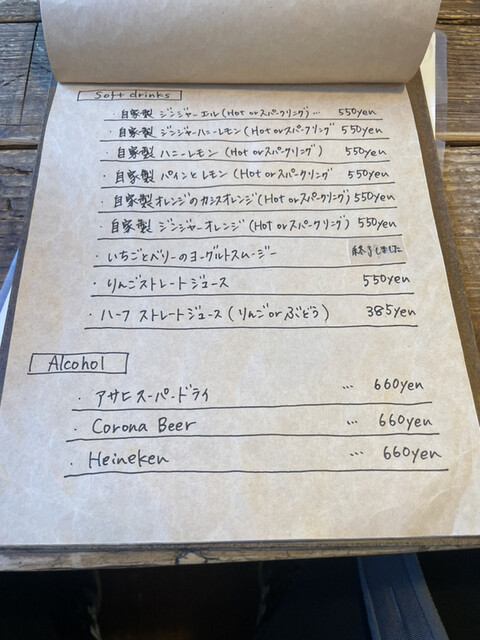 Soft drinks
・自家製 ジンジャーエル(Hot orスパークリング)… 550yen
・自家製 ジンジャーハニーレモン(Hot orスパークリング 550yen
・自家製 ハニーレモン (Hot orスパークリング) 550yen
・自家製 パインとレモン (Hot orスパークリング 550yen
・自家製オレンジのカシスオレンジ(Hot orスパークリング) 550yen
・自家製 ジンジャーオレンジ(Hot orスパークリング) 550yen
・いちごとベリーのヨーグルトスムージー 終了しました
・りんごストレートジュース 550yen
・ハーフ ストレートジュース (りんご or ぶどう) 385yen
Alcohol
・アサヒスーパードライ … 660yen
・Corona Beer … 660yen
・Heineken … 660yen